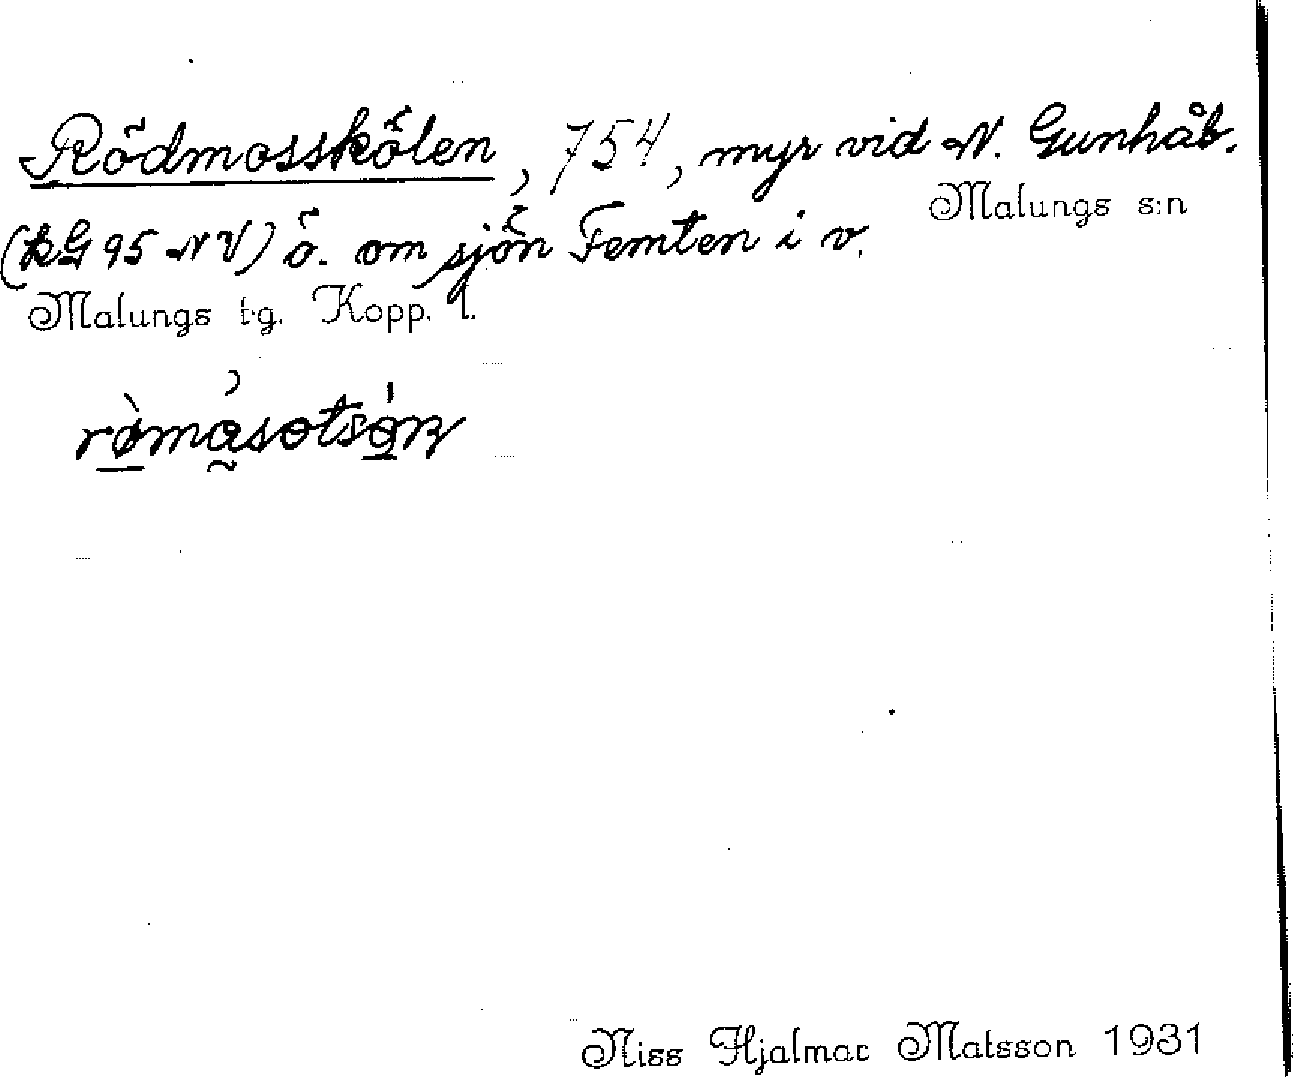 Rödmosskölen, 754, myr vid N. Gunhåb.
Malungs s:n
(kG 95 NV) ö. om sjön Femten i v.
Malungs t·g. Kopp. l.
Niss Hjalmar Matsson 1931